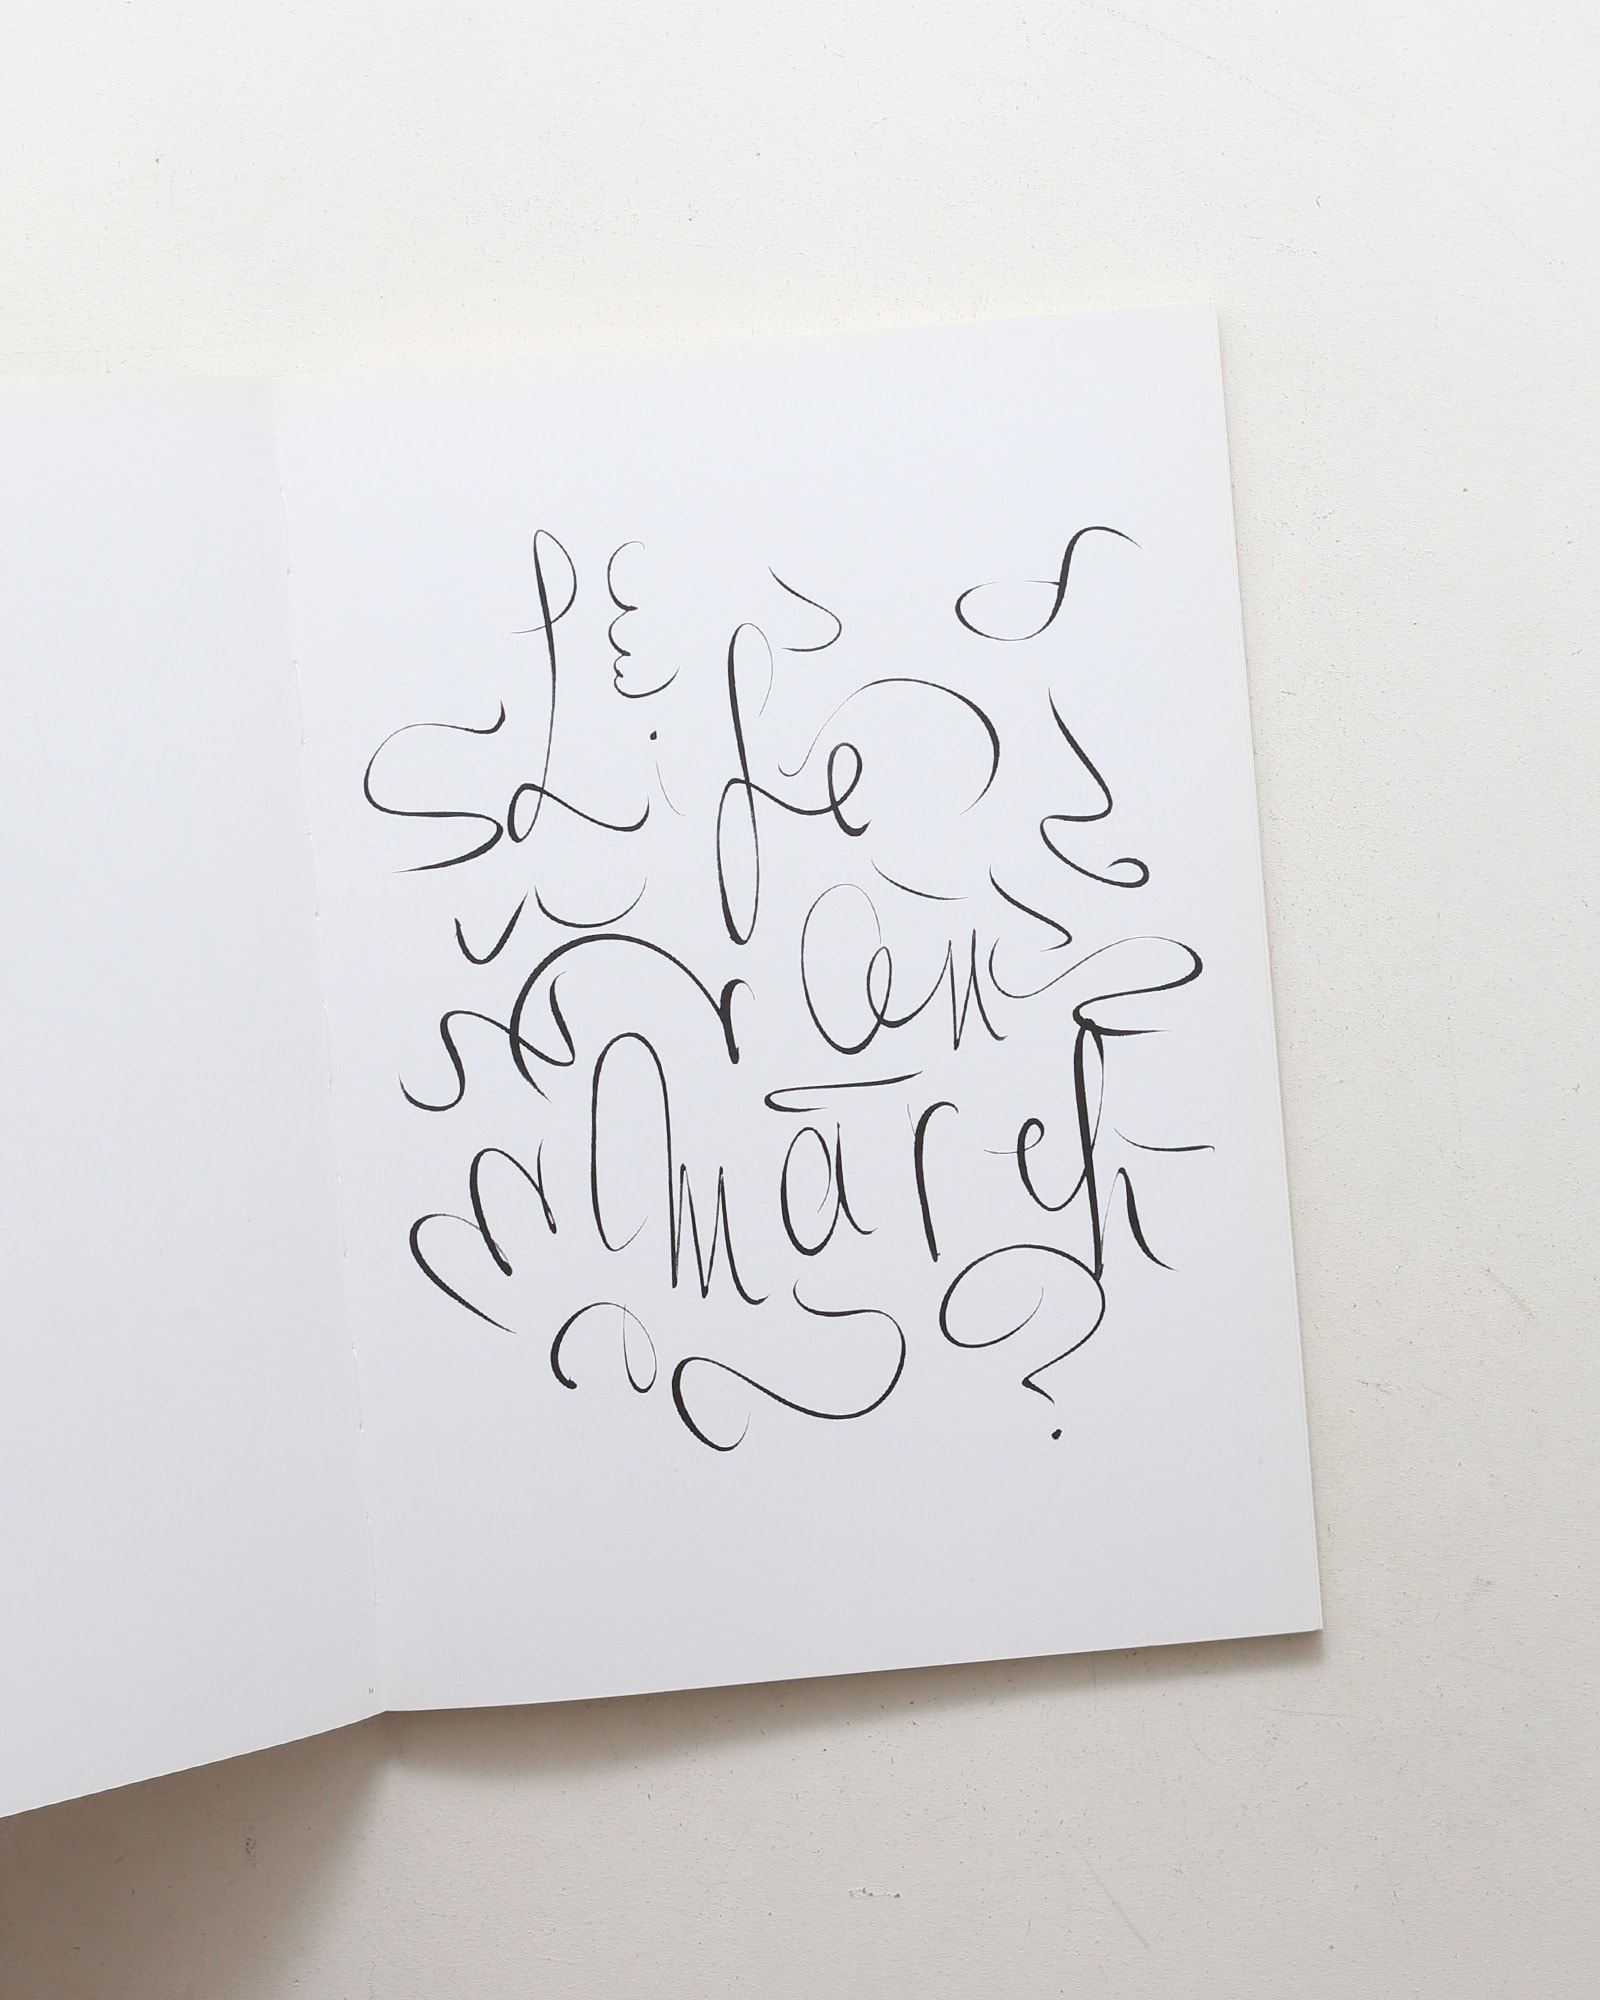 Life
an
march
?